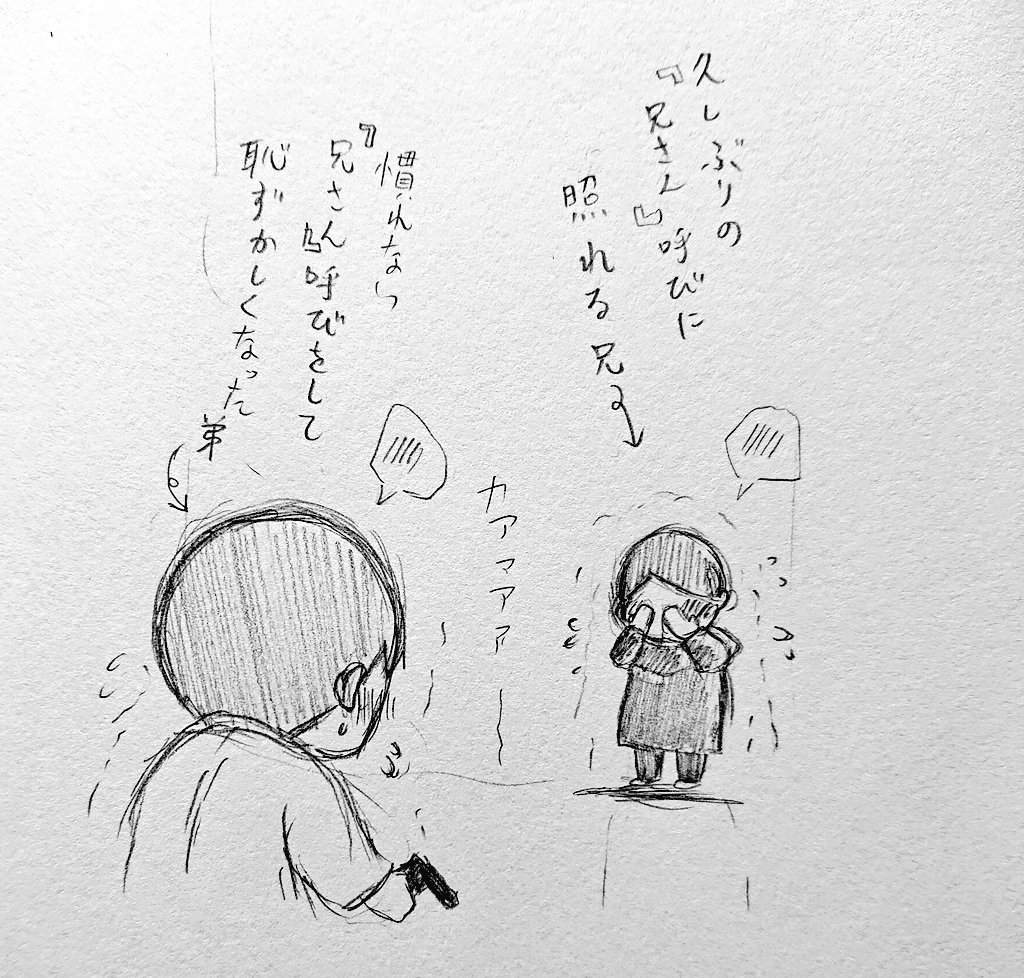 久しぶりの
『兄さん』呼びに
照れる兄
慣れない
『兄さん』呼びをして
恥ずかしくなった
弟
カアァァァ